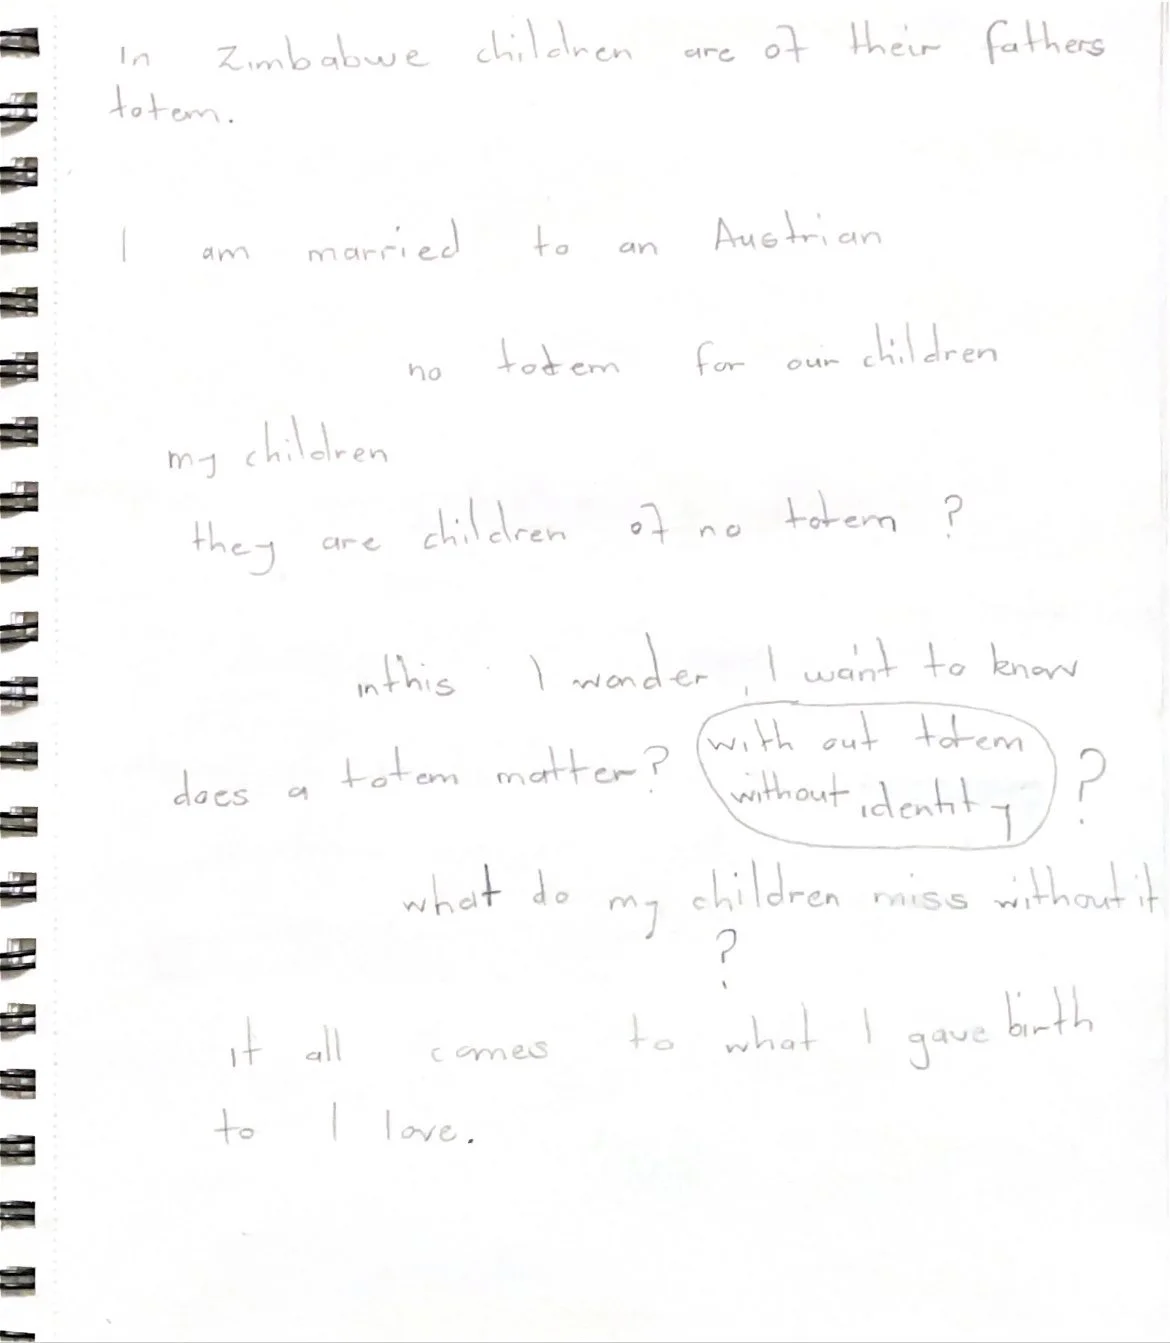 In Zimbabwe children are of their fathers
totem.
I am married to an Austrian
no totem for our children
my children
they are children of no totem ?
inthis I wonder, I want to know
does a totem matter? with out totem
without identity ?
what do my children miss without it
?
it all comes to what I gave birth
to I love.